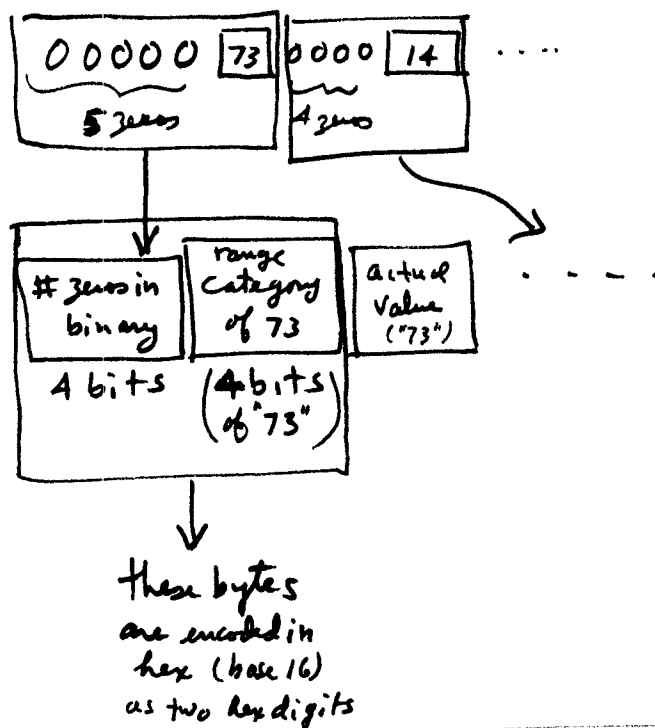 0 0 0 0 0 73 0 0 0 0 14 ....
5 zeros 4 zeros
# zeros in
binary
range
category
of 73
actual
value
("73")
- - - -
4 bits
(4 bits
of "73")
these bytes
are encoded in
hex (base 16)
as two hex digits